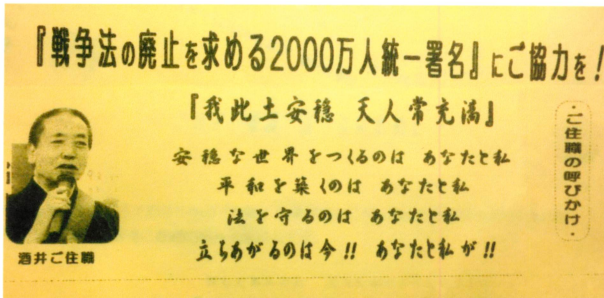 『戦争法の廃止を求める2000万人統一署名』にご協力を!
『我此土安穏 天人常充満』
・ご住職の呼びかけ・
安穏な世界をつくるのは あなたと私
平和を築くのは あなたと私
法を守るのは あなたと私
立ちあがるのは今!! あなたと私が!!
酒井ご住職